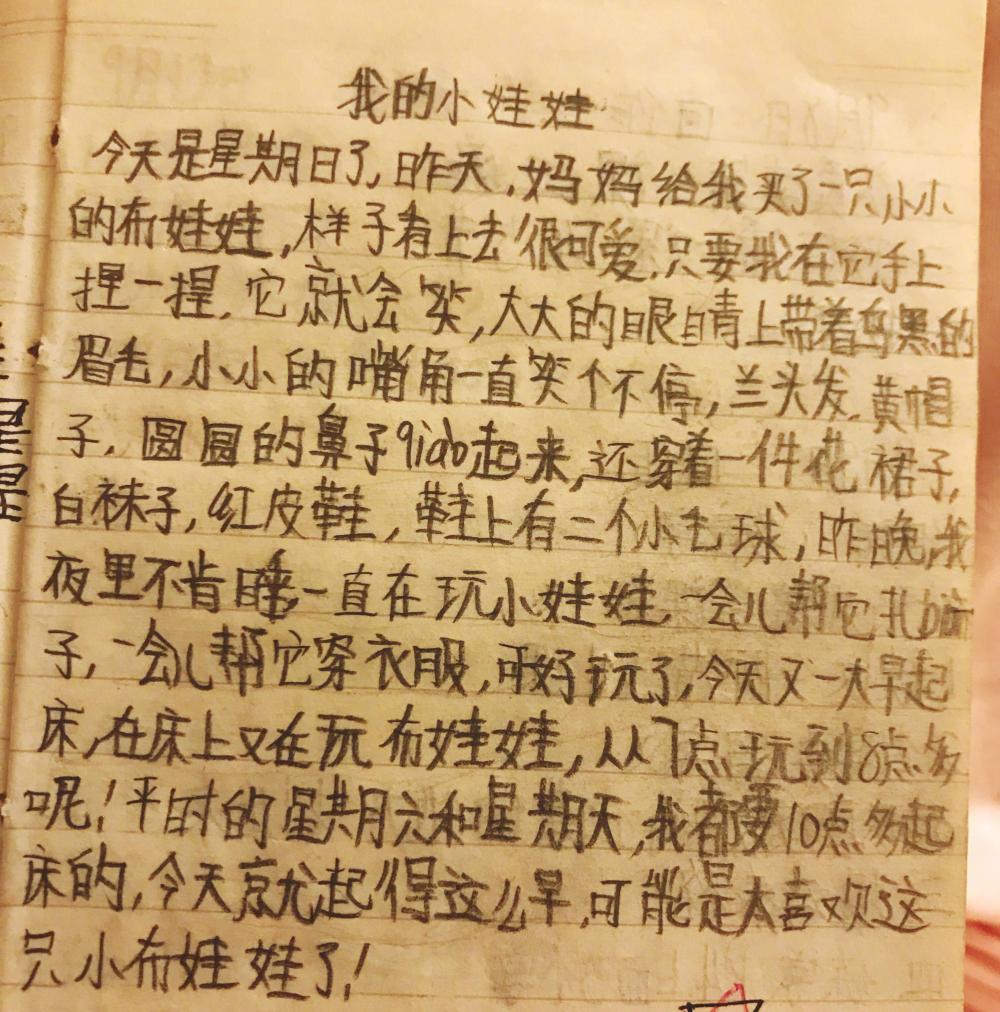 我的小娃娃
今天是星期日了,昨天,妈妈给我买了一只小小
的布娃娃,样子看上去很可爱.只要我在它手上
捏一捏.它就会笑,大大的眼睛上带着乌黑的
眉毛,小小的嘴角一直笑个不停,兰头发.黄帽
子,圆圆的鼻子qiao起来,还穿着一件花裙子,
白袜子,红皮鞋,鞋上有二个小毛球,昨晚,我
夜里不肯睡,一直在玩小娃娃.一会儿帮它扎bian
子,一会儿帮它穿衣服,可好玩了,今天又一大早起
床,在床上又在玩布娃娃,从7点玩到8点多
呢!平时的星期六和星期天,我都要10点多起
床的,今天就起得这么早,可能是太喜欢这
只小布娃娃了!